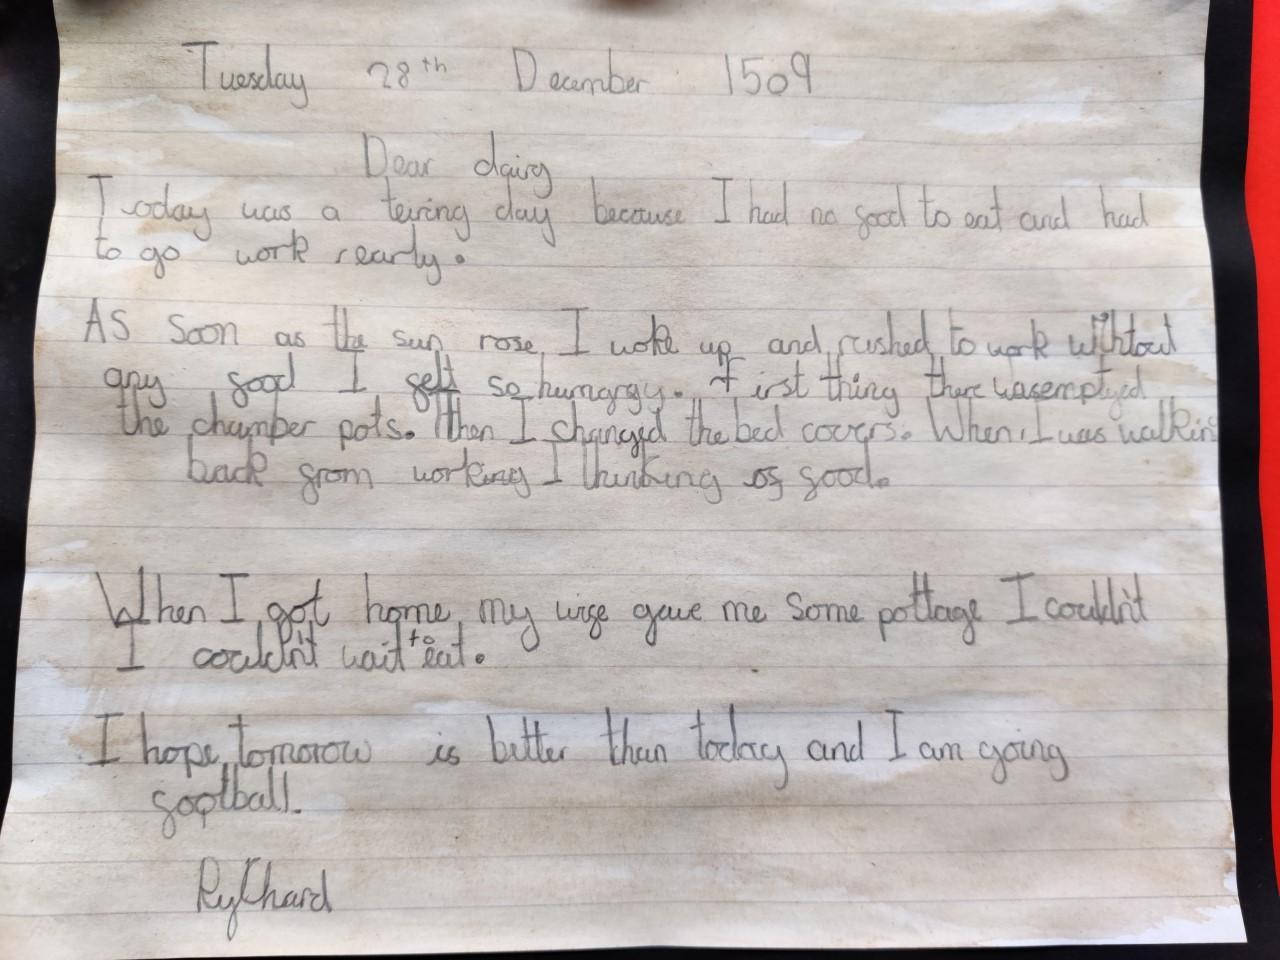 Tuesday 28th December 1509
Dear dairy
Today was a tering day because I had no food to eat and had
to go work rearly.
As Soon as the sun rose, I woke up and rushed to work without
any food I felt so hungrgy. First thing there wasemptyed
the chamber pots. Then I changed the bed covers. When I was walking
back from working I thinking of food.
When I got home, my wife gave me Some pottage I couldn't
I couldn't wait to eat.
I hope tomorow is better than today and I am going
football.
RyChard